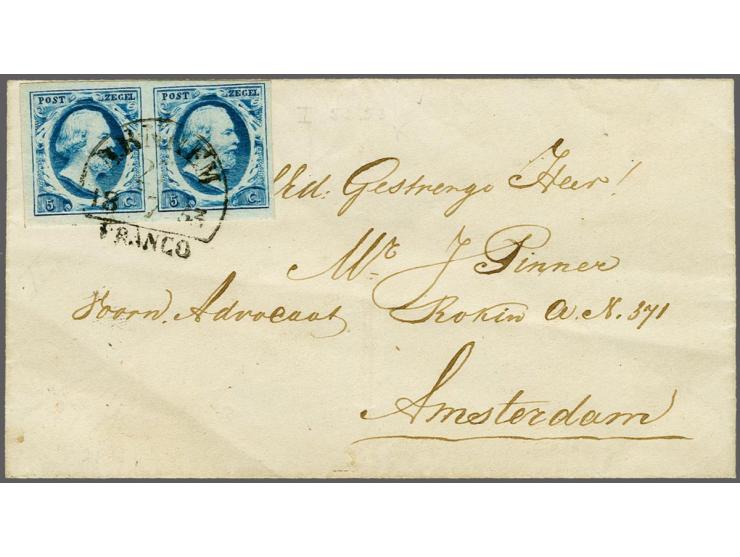 POST ZEGEL POST ZEGEL
5 C. 5 C.
ARNHEM
18 53
FRANCO
Ed. Gestrenge Heer!
Mr. J Pinner
Voorn. Advocaat Rokin A. N. 371
Amsterdam